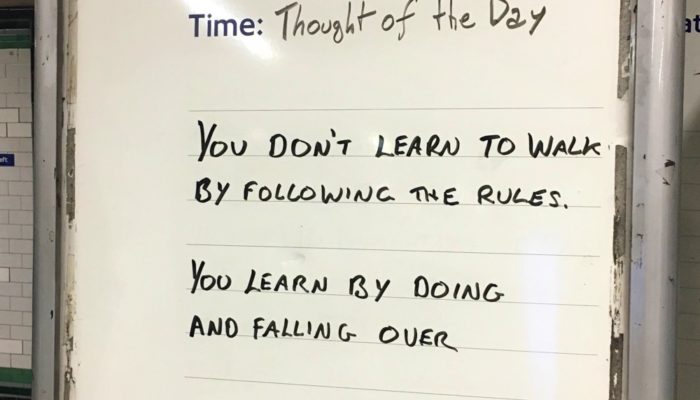 Time: Thought of the Day
YOU DON'T LEARN TO WALK
BY FOLLOWING THE RULES.
YOU LEARN BY DOING
AND FALLING OVER